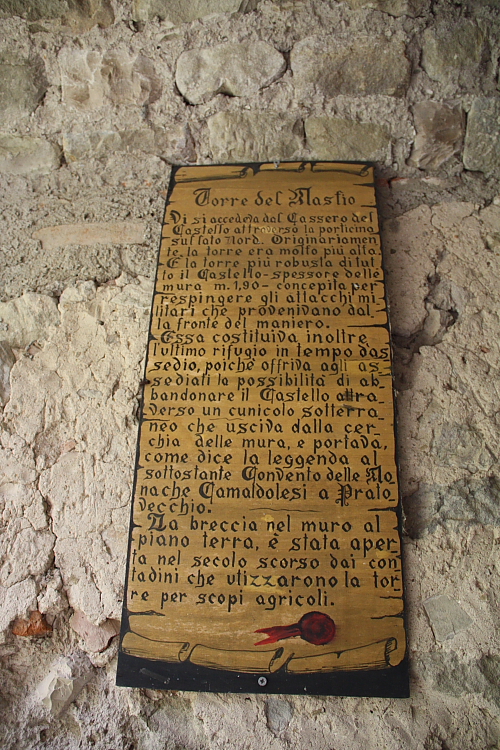 Torre del Mastio
Vi si accedeva dal Cassero del
Castello attraverso la porticina
sul lato Nord. Originariamen
te la torre era molto più alta.
È la torre più robusta di tut
to il Castello-spessore delle
mura m. 1,90- concepita per
respingere gli attacchi mi
litari che provenivano dal
la fronte del maniero.
Essa costituiva inoltre,
l'ultimo rifugio in tempo d'as
sedio, poichè offriva agli as
sediati la possibilità di ab
bandonare il Castello attra
verso un cunicolo sotterra
neo che usciva dalla cer
chia delle mura, e portava,
come dice la leggenda al
sottostante Convento delle Mo
nache Camaldolesi a Prato
vecchio.
La breccia nel muro al
piano terra, è stata aper
ta nel secolo scorso dai con
tadini che utizzarono la tor
re per scopi agricoli.